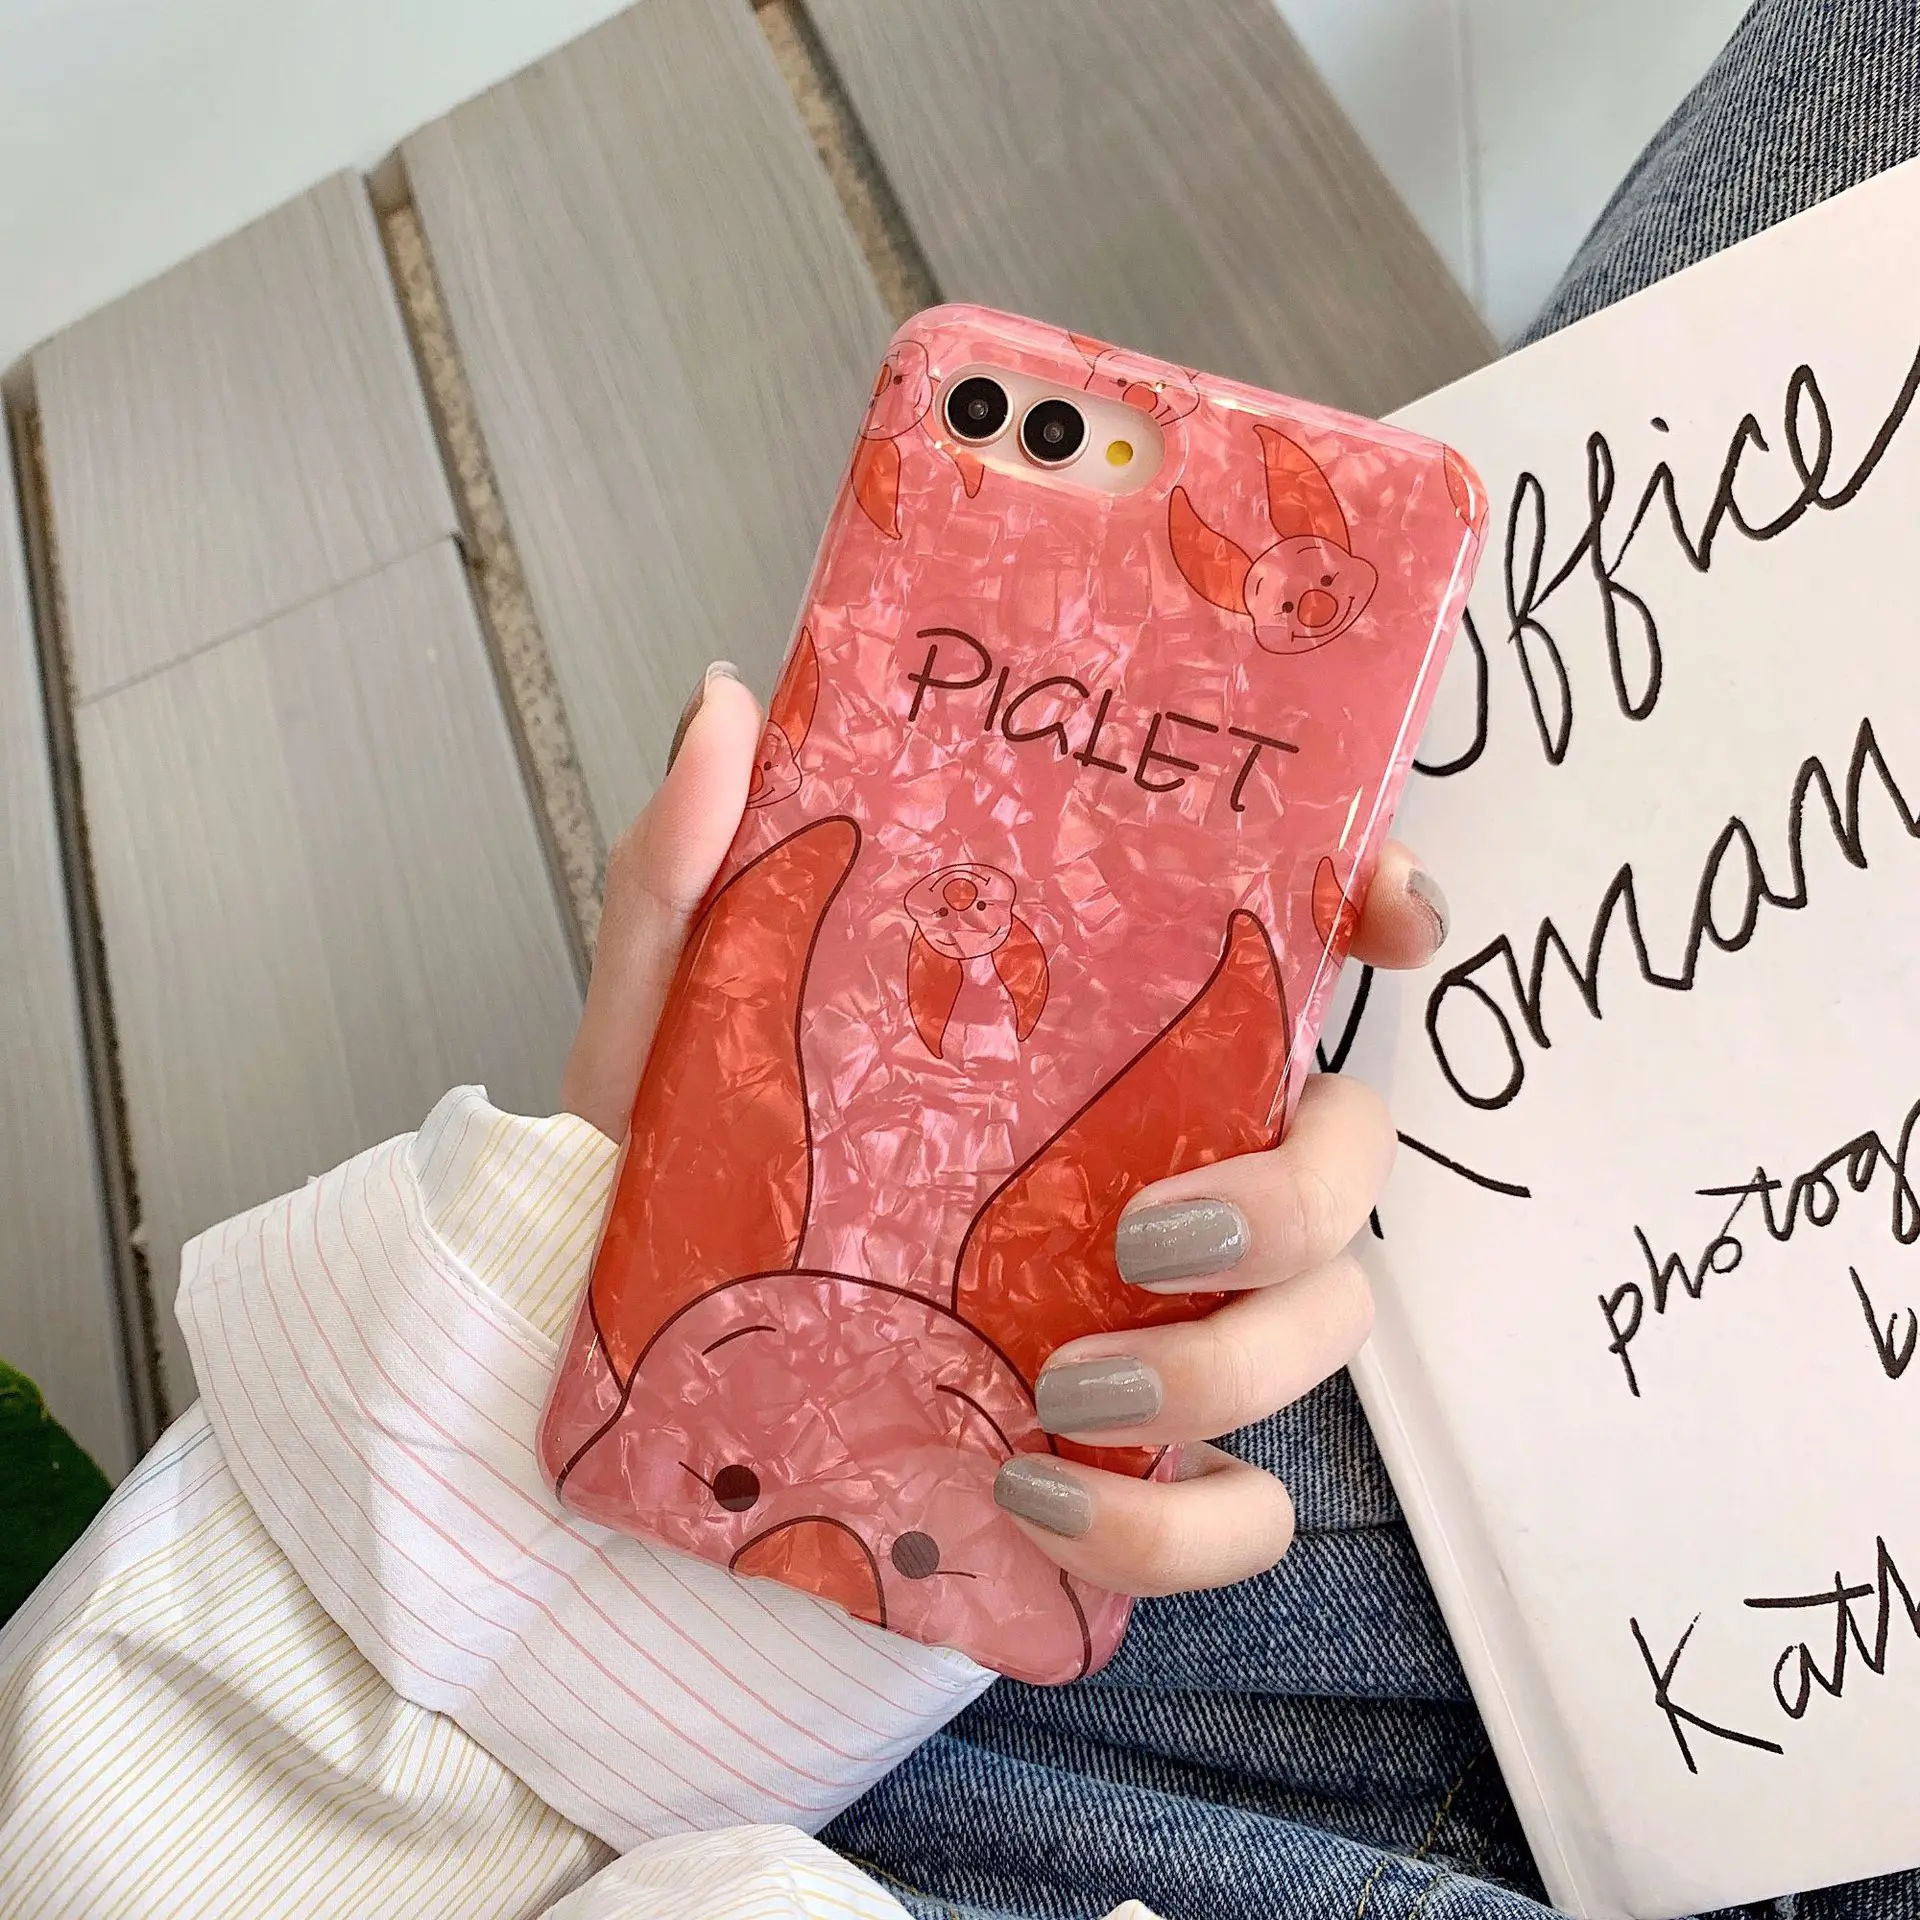 PIGLET
Office
Romance
photog
by
Kath